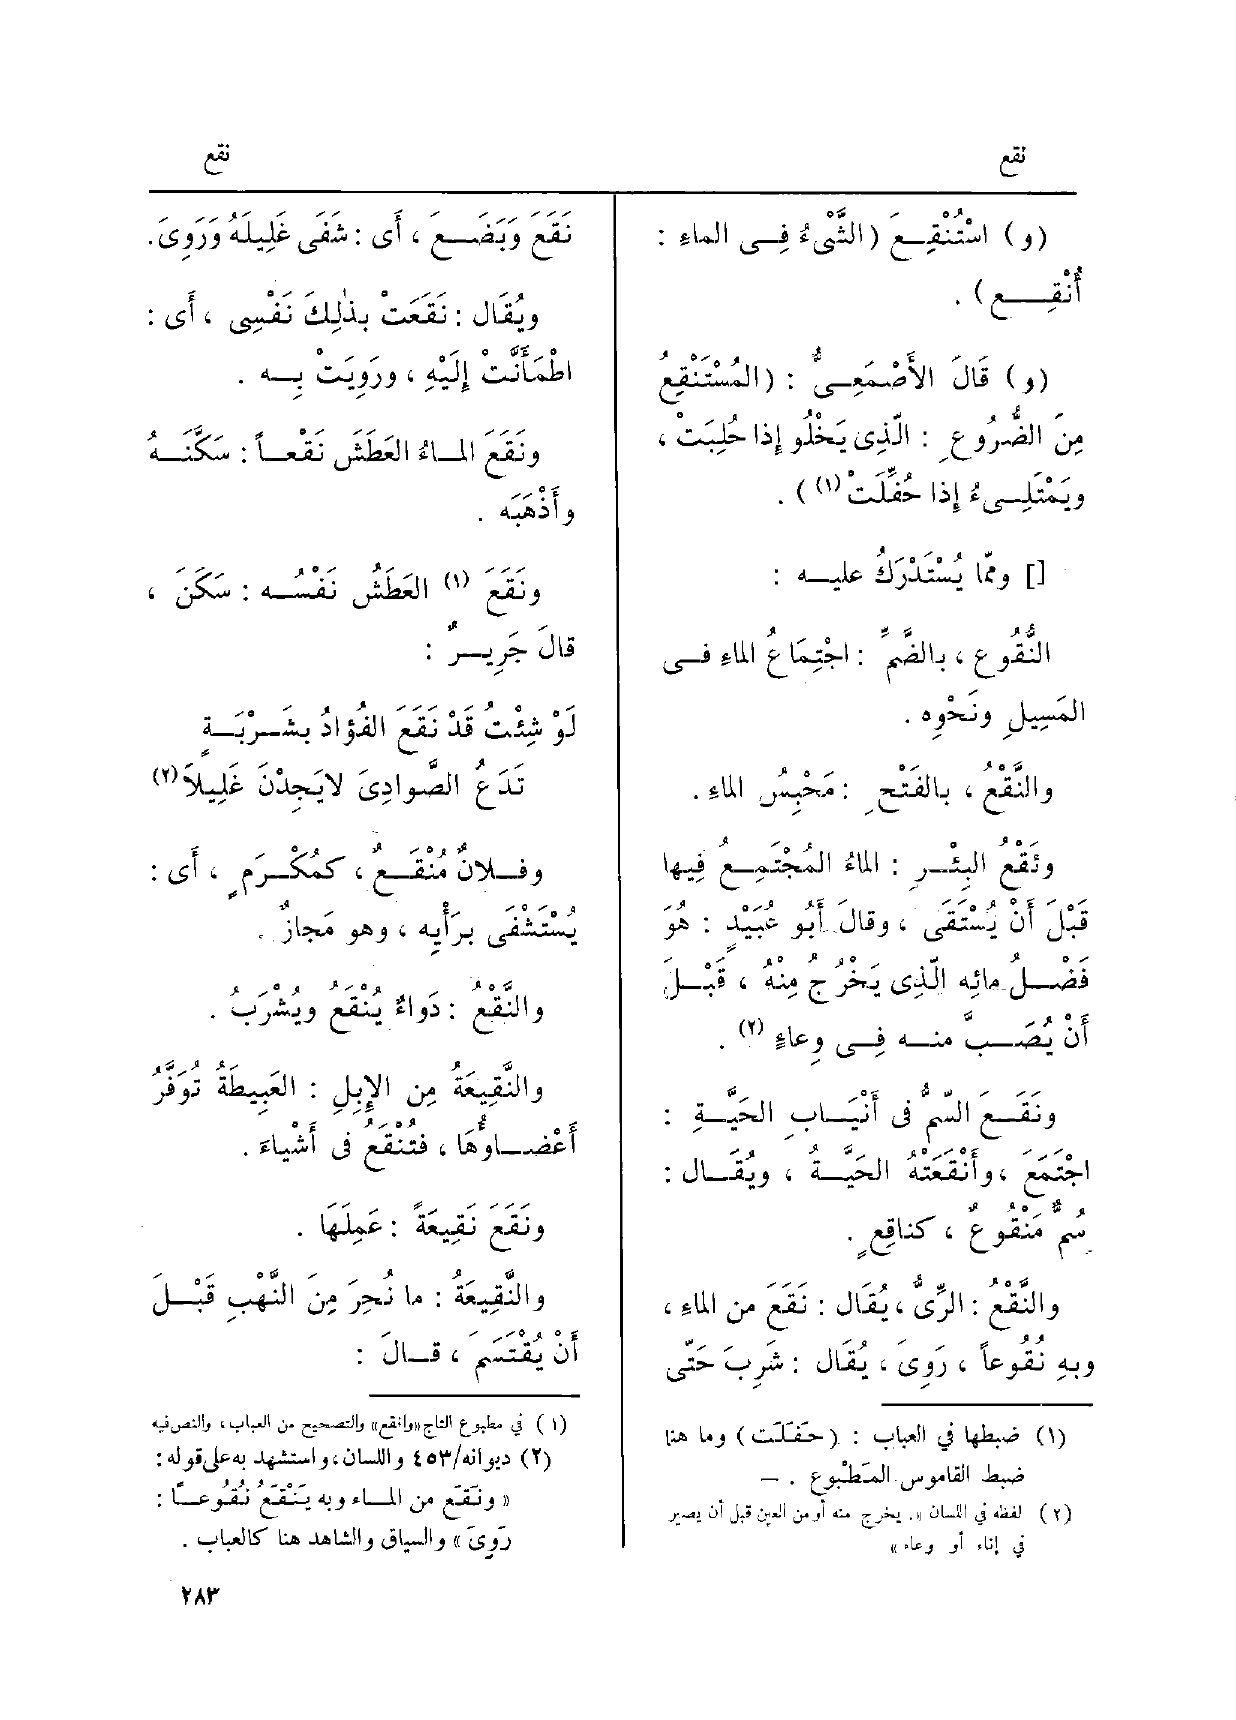 نقع
نقع
(و) اسْتُنْقِـعَ (الشَّىْءُ فِـى الماءِ :
أُنْقِـــع) .
(و) قَالَ الأَصْمَعِـىُّ : (المُسْتَنْقِعُ
مِنَ الضُّرُوعِ : الَّذِى يَخْلُو إِذا حُلِبَتْ ،
ويَمْتَلِـىءُ إِذا حُفِّلَتْ (١) ) .
[] وممّا يُسْتَدْرَكُ عليـه :
النُّقُوع ، بالضَّمِّ : اجْتِمَاعُ الماءِ فـى
المَسِيلِ ونَحْوِه .
والنَّقْعُ ، بالفَتْحِ : مَحْبِسُ الماءِ .
ونَقْعُ البِئْـرِ : الماءُ المُجْتَمِـعُ فِيها
قَبْلَ أَنْ يُسْتَقَى ، وقالَ أَبُو عُبَيْدٍ : هُوَ
فَضْـلُ مائِه الَّذِى يَخْرُجُ مِنْهُ ، قَبْـلَ
أَنْ يُصَـبَّ منـه فِـى وِعاءٍ (٢) .
ونَقَـعَ السّمُّ فى أَنْيَـابِ الحَيَّـةِ :
اجْتَمَعَ ، وأَنْقَعَتْهُ الحَيَّـةُ ، ويُقَـال :
سُمٌّ مَنْقُوعٌ ، كناقِعٍ .
والنَّقْعُ : الرِّىُّ ، يُقَال : نَقَعَ من الماءِ ،
وبِهِ نُقُوعاً ، رَوِىَ ، يُقَال : شَرِبَ حَتَّى
(١) ضبطها في العباب : (حَفَلَتْ) وما هنا
ضبط القاموس المطبوع . —
(٢) لفظه في اللسان «. يخرج منه أو من العين قبل أن يصير
في إناء أو وعاء »
نَقَعَ وَبَضَـعَ ، أَى : شَفَى غَلِيلَهُ وَرَوِىَ.
ويُقَال : نَقَعَتْ بذٰلِكَ نَفْسِى ، أَى :
اطْمَأَنَّتْ إِلَيْهِ ، ورَوِيَتْ بِـه .
ونَقَعَ المـاءُ العَطَشَ نَقْعـاً : سَكَّنَـهُ
وأَذْهَبَه .
ونَقَعَ (١) العَطَشُ نَفْسُـه : سَكَنَ ،
قالَ جَرِيـرٌ :
لَوْ شِئْتُ قَدْ نَقَعَ الفُؤادُ بشَـرْبَـةٍ
تَدَعُ الصَّوادِىَ لايَجِدْنَ غَلِيلاَ(٢)
وفـلانٌ مُنْقَـعٌ ، كمُكْـرَمٍ ، أَى :
يُسْتَشْفَى برَأْيِه ، وهو مَجازٌ .
والنَّقْعُ : دَواءٌ يُنْقَعُ ويُشْرَبُ .
والنَّقِيعَةُ مِن الإِبِلِ : العَبِيطَةُ تُوَفَّرُ
أَعْضـاوُهَا ، فتُنْقَعُ فى أَشْياءَ .
ونَقَعَ نَقِيعَةً : عَمِلَهَا .
والنَّقِيعَةُ : ما نُحِرَ مِنَ النَّهْبِ قَبْـلَ
أَنْ يُقْتَسَمَ ، قـالَ :
(١) في مطبوع التاج «وانقع» والتصحيح من العباب، والنص فيه
(٢) ديوانه/٤٥٣ واللسان، واستشهد به على قوله :
« ونَقَعَ من المـاء وبه يَنْقَعُ نُقُوعـًا :
رَوِىَ » والسياق والشاهد هنا كالعباب .
٢٨٣